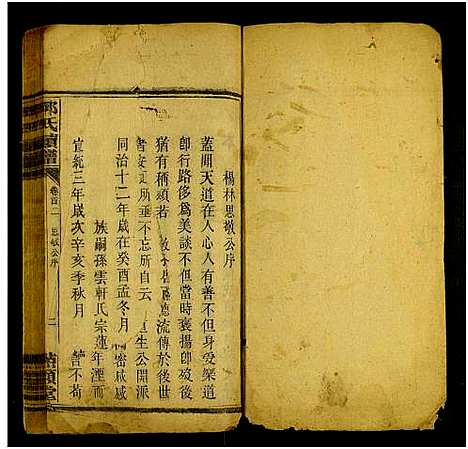 楊林思敬公序
蓋聞天道在人心人有善不但身受樂道
即行路侈為美談不但當時褒揚即歿後
猶有稱頌者 德流傳於後世
書安 所垂不忘所自云 生公開派
同治十二年歲在癸酉孟冬月
族嗣孫雲軒氏宗蓮年湮而
宣統三年歲次辛亥季秋月 不苟
氏續譜
卷首二
思敬公序
二